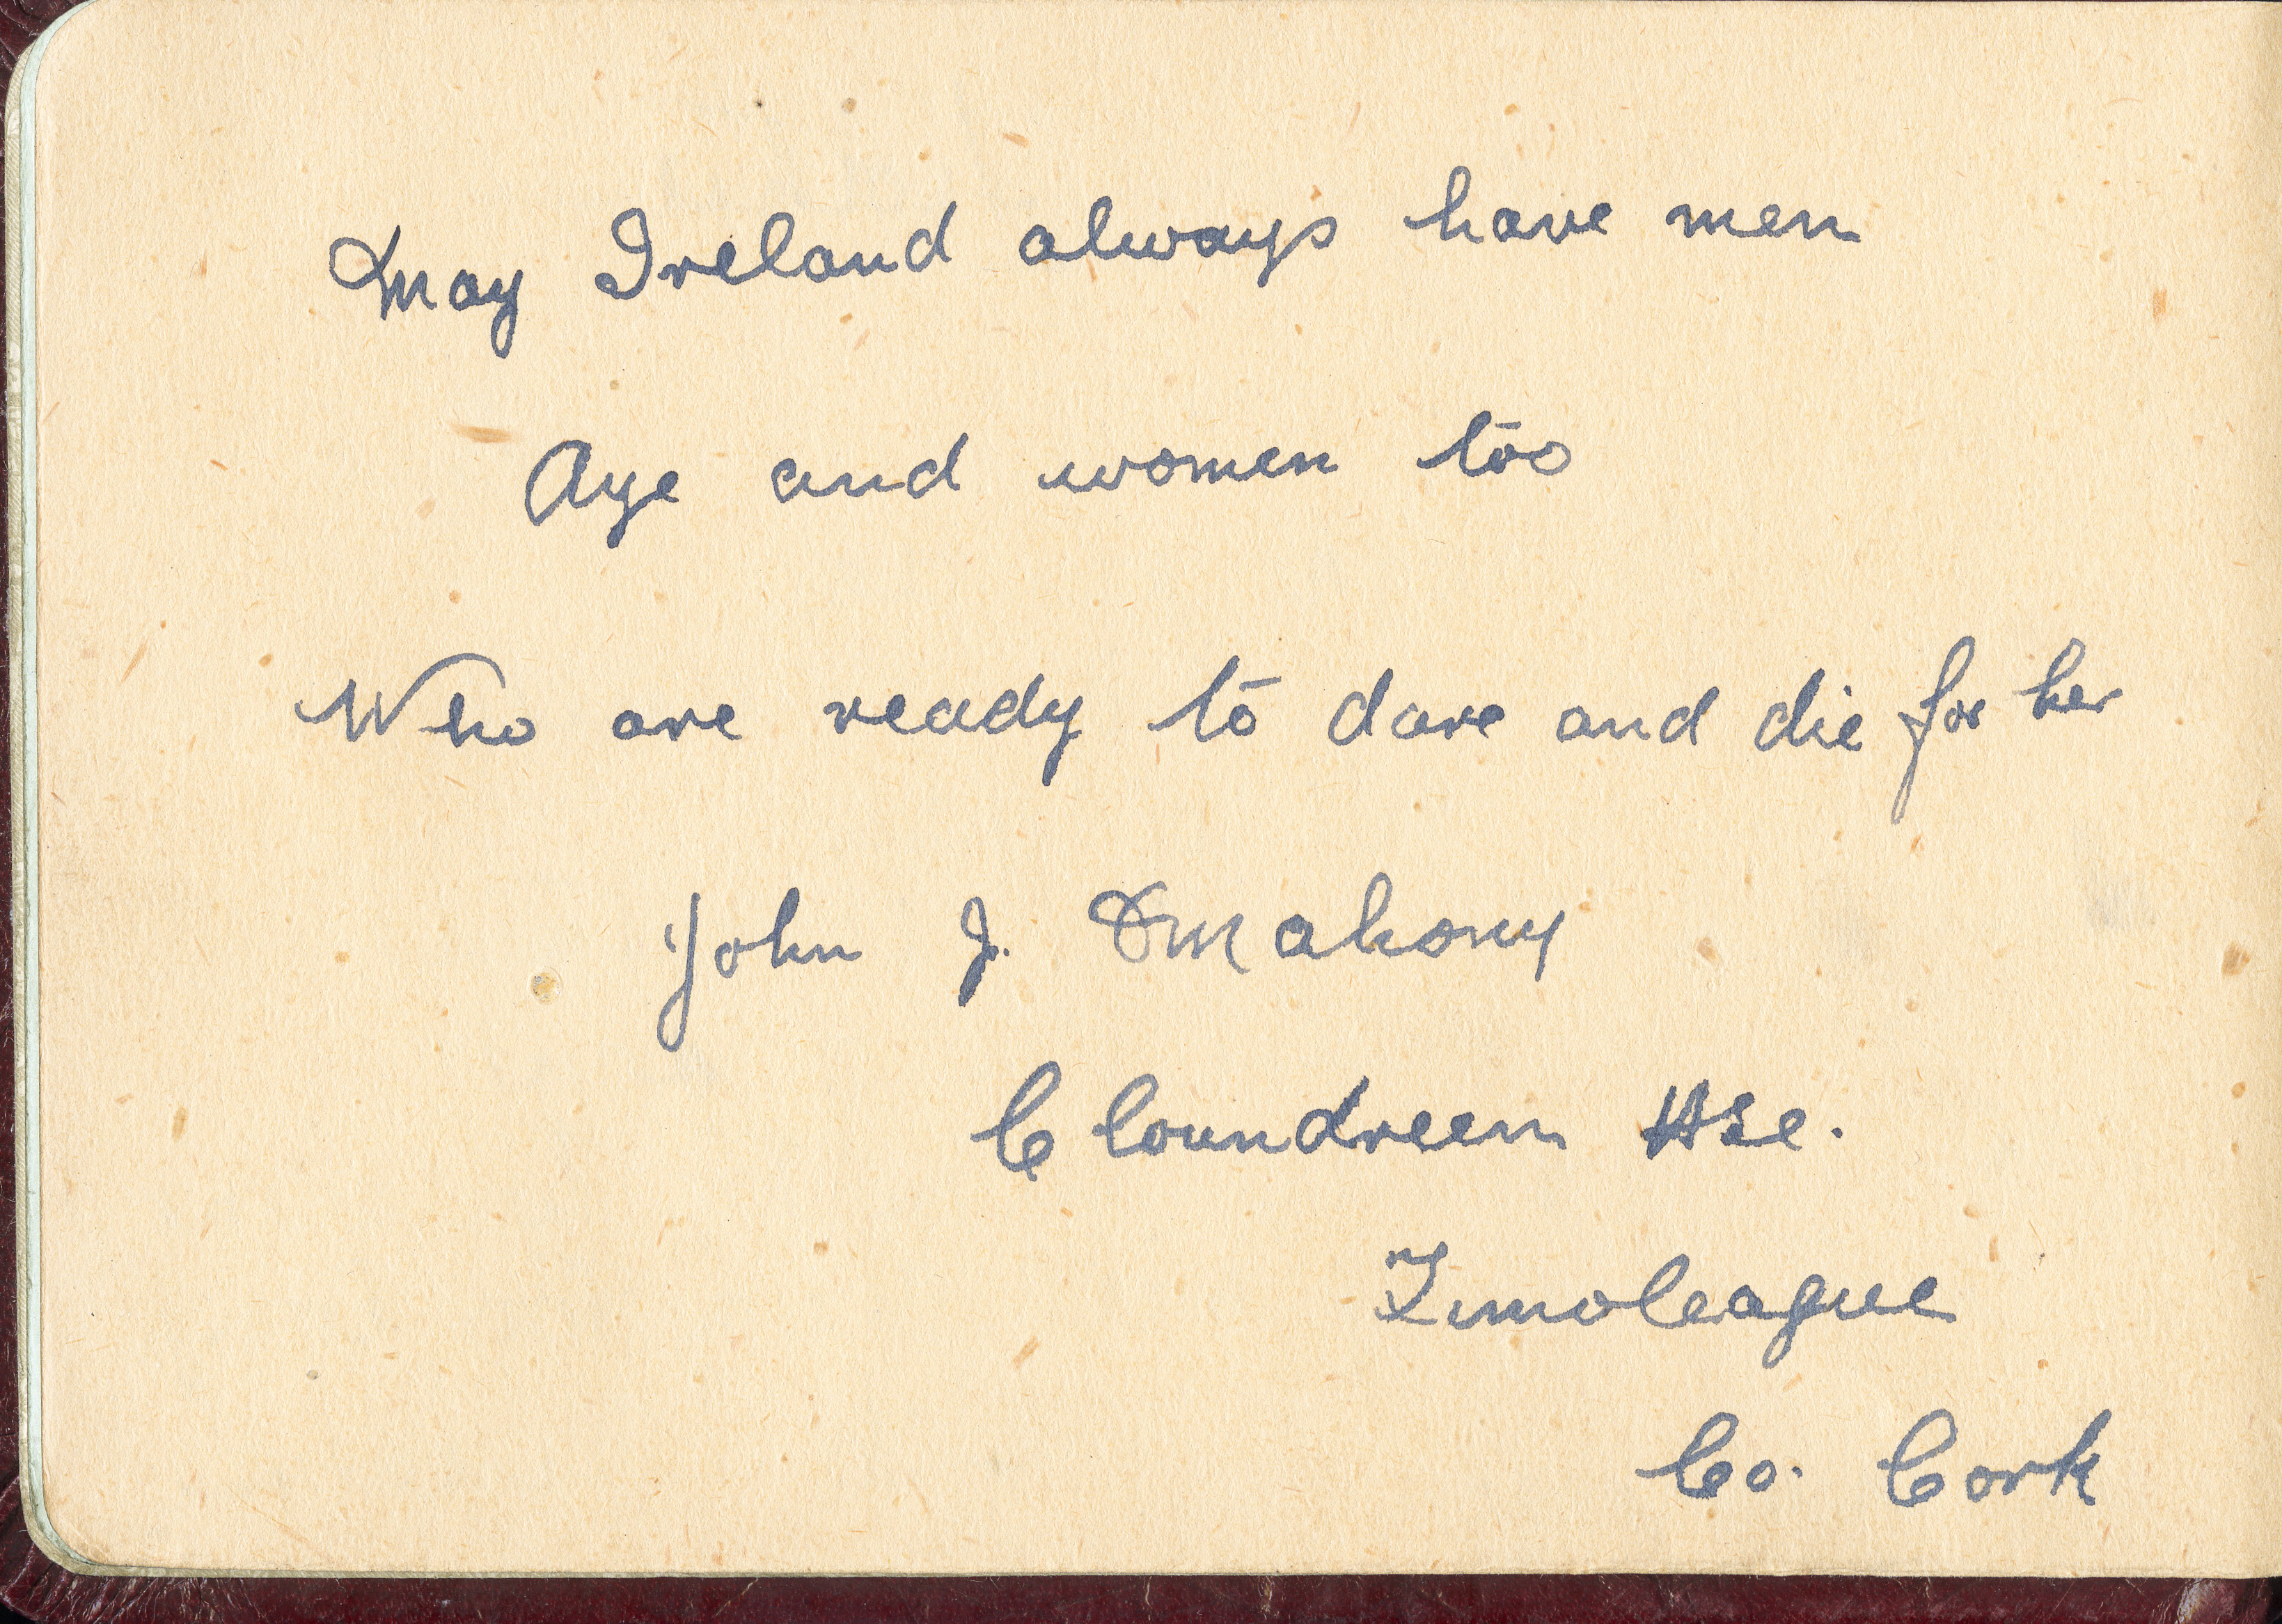 May Ireland always have men
Aye and women too
Who are ready to dare and die for her
John J. Mahony
Cloundreen Hse.
Timoleague
Co. Cork